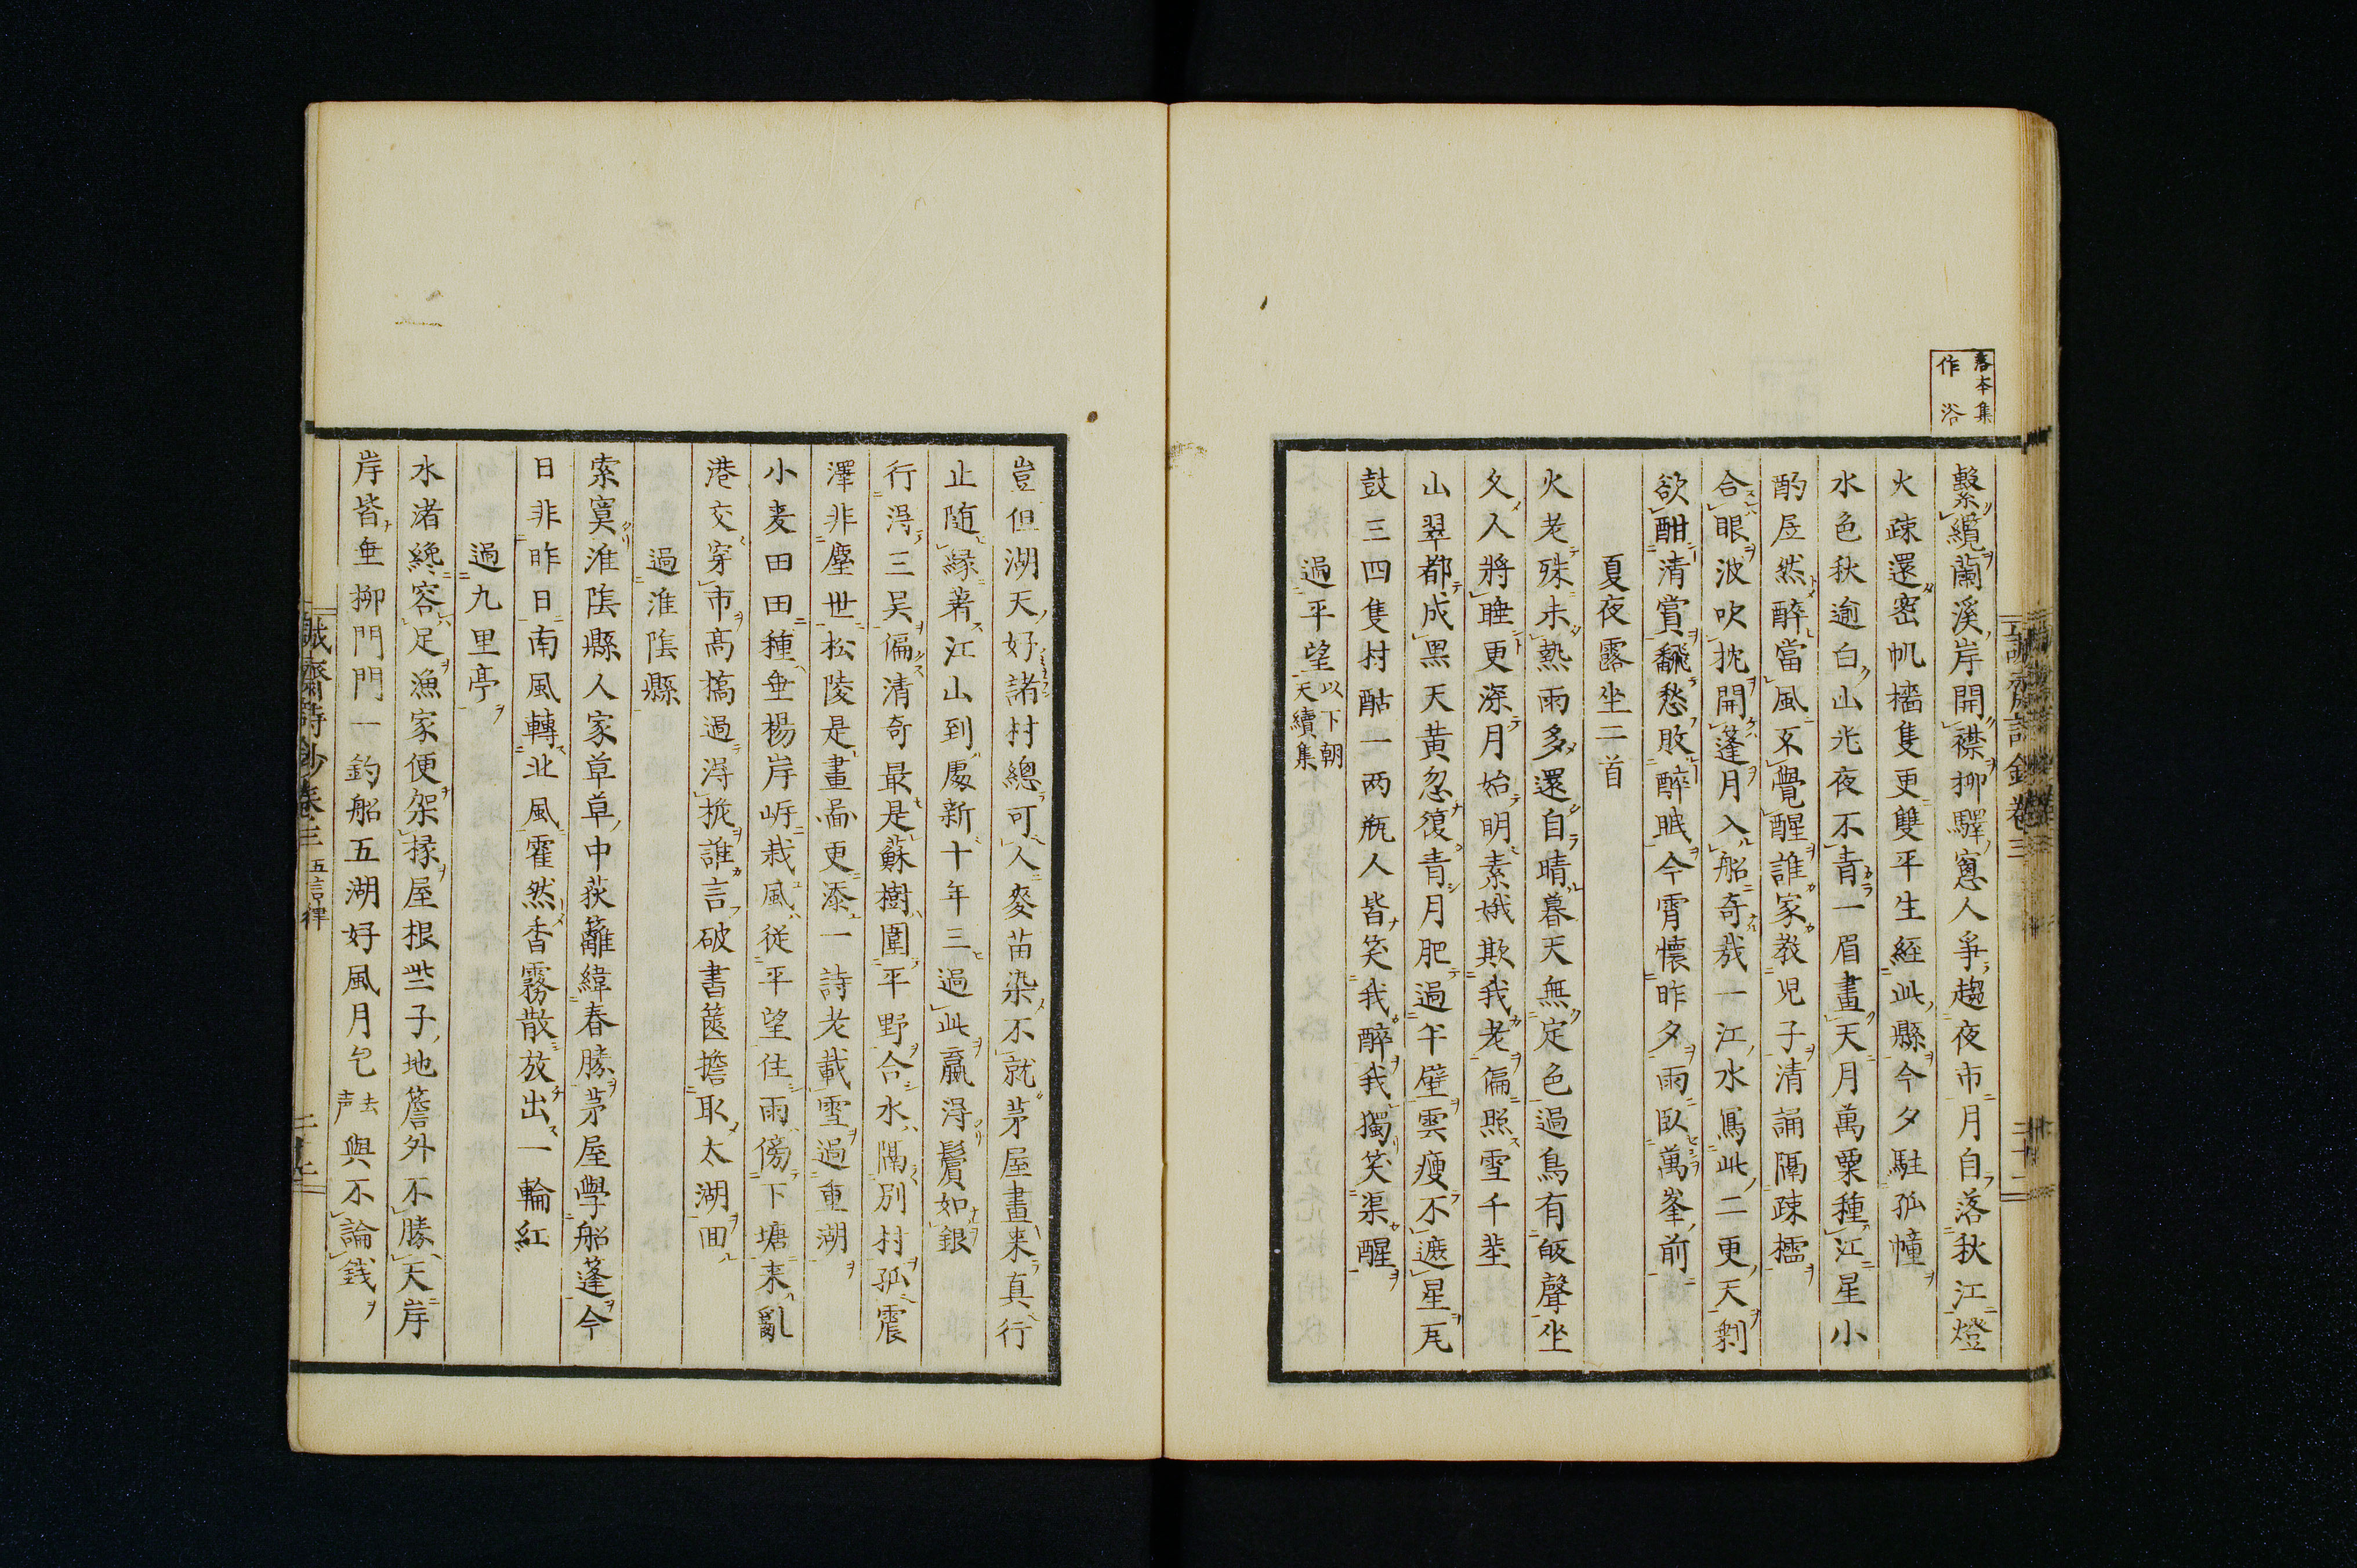 落本集
作浴
繫纜蘭溪岸開襟柳驛窻人爭趨夜市月自落秋江燈
火疎還密帆檣隻更雙平生經此縣今夕駐孤幢
水色秋逾白山光夜不青一眉畫天月萬粟種江星小
酌居然醉當風不覺醒誰家教児子清誦隔疎櫺
合眼波吹枕開蓬月入船奇哉一江水寫此二更天剩
欲酣清賞飜愁敗醉眠今霄懷昨夕雨臥萬峯前
夏夜露坐二首
火老殊未熱雨多還自晴暮天無定色過鳥有皈聲坐
久人將睡更深月始明素娥欺我老偏照雪千莖
山翠都成黑天黄忽復青月肥過半壁雲瘦不遮星瓦
鼓三四隻村酤一两瓶人皆笑我醉我獨笑渠醒
過平望
以下朝
天續集
豈但湖天好諸村總可人麥苗染不就茅屋畫来真行
止随縁著江山到處新十年三過此贏得鬢如銀
行得三吴偏清奇最是蘇樹圍平野合水隔別村孤震
澤非塵世松陵是畫啚更添一詩老載雪過重湖
小麦田田種垂楊岸岸栽風従平望住雨傍下塘来亂
港交穿市高橋過得桅誰言破書篋擔取太湖回
過淮陰縣
索寞淮陰縣人家草草中荻籬緯春勝茅屋學船蓬今
日非昨日南風轉北風霍然香霧散放出一輪紅
過九里亭
水渚纔容足漁家便架椽屋根些子地簷外不勝天岸
岸皆垂柳門門一釣船五湖好風月乞
去
声
與不論錢
誠齋詩鈔卷三
五言律